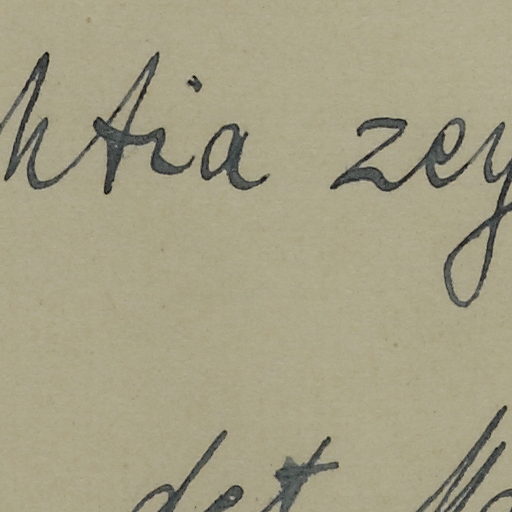 htia zey
det. Ma